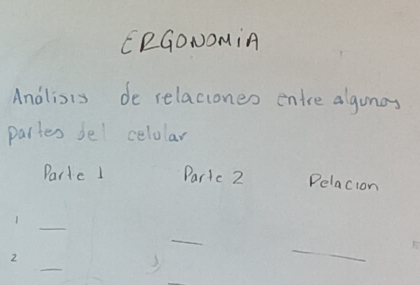 ERGONOMIA
Análisis de relaciones entre algunas
partes del celular
Parte 1 Parte 2 Relacion
1
2